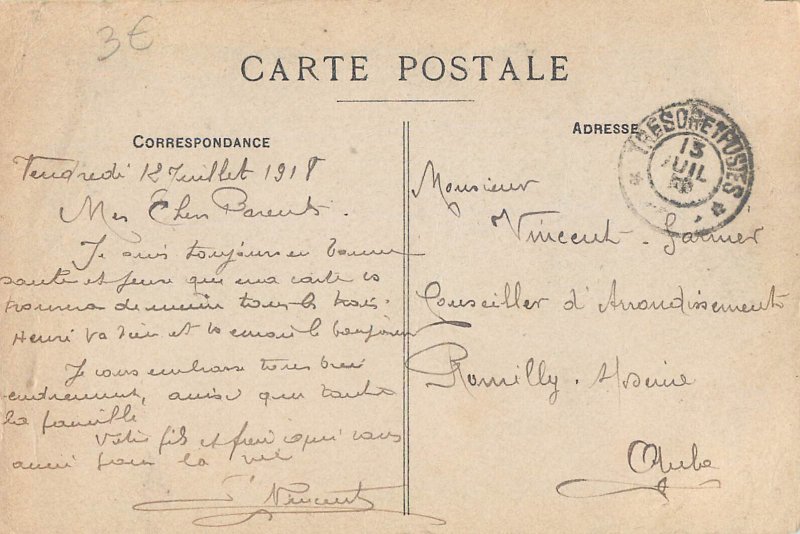 3€
CARTE POSTALE
CORRESPONDANCE
ADRESSE
TRESOR ET POSTES
13
JUIL
Vendredi 12 Juillet 1918
Mes Chers Parents.
Je suis toujours en bonne
sante et pense que ma carte vs
trouvera de meme tous les trois.
Henri va bien et vs envoie le bonjour
Je vous embrasse tous bien
tendrement, ainsi que toute
la famille
Votre fils et frere qui vous
aime pour la vie
Vincent
Monsieur
Vincent-Garnier
Conseiller d'Arrondissement
Romilly. s/Seine
Aube